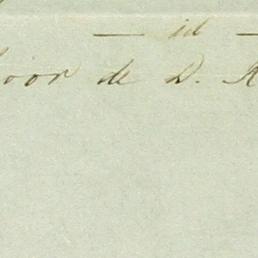 — id —
door de D. A